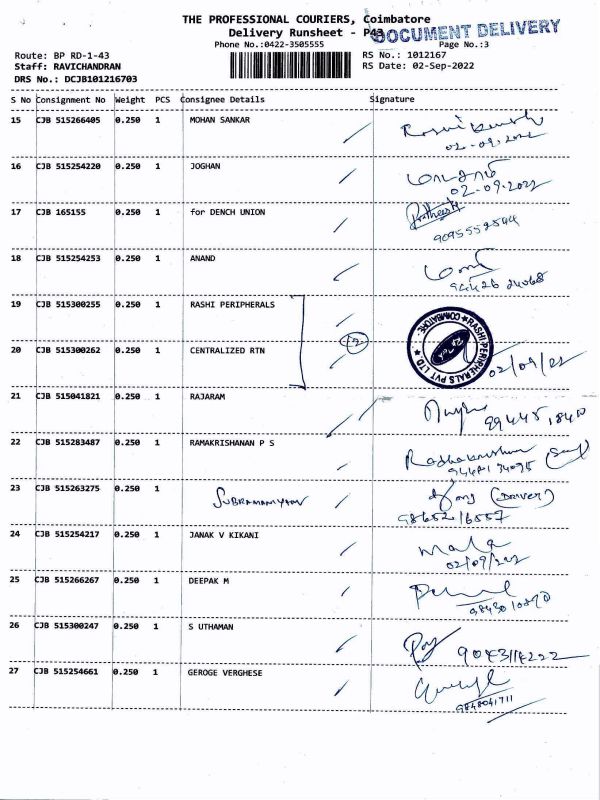 THE PROFESSIONAL COURIERS, Coimbatore
Delivery Runsheet - P43
DOCUMENT DELIVERY
Phone No.:0422-3505555
Page No.:3
Route: BP RD-1-43
RS No.: 1012167
Staff: RAVICHANDRAN
RS Date: 02-Sep-2022
DRS No.: DCJB101216703
S No Consignment No Weight PCS Consignee Details Signature
15 CJB 515266405 0.250 1 MOHAN SANKAR
02-09-2022
16 CJB 515254220 0.250 1 JOGHAN
02-09-2022
17 CJB 165155 0.250 1 for DENCH UNION
9095552544
18 CJB 515254253 0.250 1 ANAND
94426 24068
19 CJB 515300255 0.250 1 RASHI PERIPHERALS
12
RASHI PERIPHERALS PVT. LTD. COIMBATORE
20 CJB 515300262 0.250 1 CENTRALIZED RTN
02/09/22
21 CJB 515041821 0.250 1 RAJARAM
22 CJB 515283487 0.250 1 RAMAKRISHANAN P S
Radhakrishnan
23 CJB 515263275 0.250 1 SUBRAMANIYAN
(DRIVER)
98652 16557
24 CJB 515254217 0.250 1 JANAK V KIKANI
Mala
02/09/202
25 CJB 515266267 0.250 1 DEEPAK M
26 CJB 515300247 0.250 1 S UTHAMAN
Roy
9043114222
27 CJB 515254661 0.250 1 GEROGE VERGHESE
9848041711